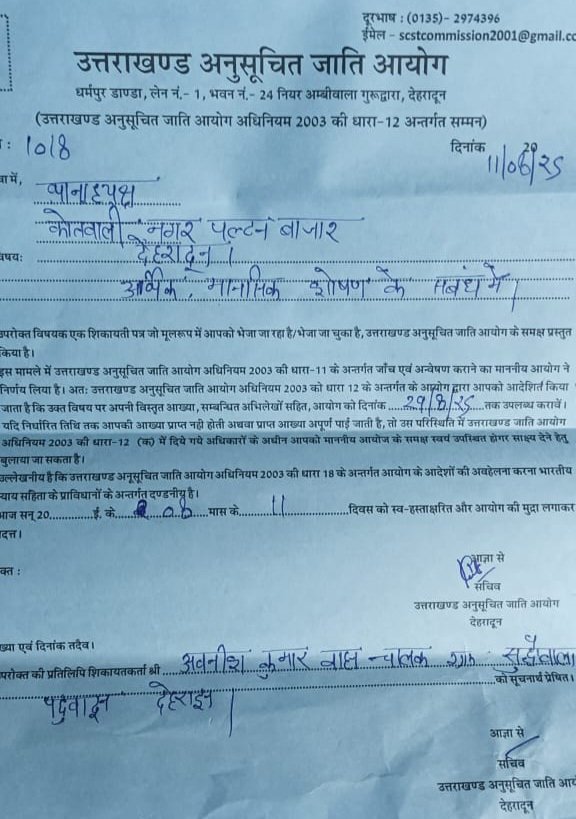 दूरभाष : (0135)- 2974396
ईमेल - scstcommission2001@gmail.co
उत्तराखण्ड अनुसूचित जाति आयोग
धर्मपुर डाण्डा, लेन नं.- 1, भवन नं.- 24 नियर अम्बीवाला गुरूद्वारा, देहरादून
(उत्तराखण्ड अनुसूचित जाति आयोग अधिनियम 2003 की धारा-12 अन्तर्गत सम्मन)
: 1018
दिनांक 11/06/25
वा में,
थानाध्यक्ष
कोतवाली नगर पल्टन बाजार
देहरादून।
षयः
आर्थिक, मानसिक शोषण के संबंध में।
उपरोक्त विषयक एक शिकायती पत्र जो मूलरूप में आपको भेजा जा रहा है/भेजा जा चुका है, उत्तराखण्ड अनुसूचित जाति आयोग के समक्ष प्रस्तुत
किया है।
इस मामले में उत्तराखण्ड अनुसूचित जाति आयोग अधिनियम 2003 की धारा-11 के अन्तर्गत जाँच एवं अन्वेषण कराने का माननीय आयोग ने
निर्णय लिया है। अतः उत्तराखण्ड अनुसूचित जाति आयोग अधिनियम 2003 की धारा 12 के अन्तर्गत के आयोग द्वारा आपको आदेशित किया
जाता है कि उक्त विषय पर अपनी विस्तृत आख्या, सम्बन्धित अभिलेखों सहित, आयोग को दिनांक 29/8/25 तक उपलब्ध करावें।
यदि निर्धारित तिथि तक आपकी आख्या प्राप्त नही होती अथवा प्राप्त आख्या अपूर्ण पाई जाती है, तो उस परिस्थिति में उत्तराखण्ड जाति आयोग
अधिनियम 2003 की धारा-12 (क) में दिये गये अधिकारों के अधीन आपको माननीय आयोज के समक्ष स्वयं उपस्थित होगर साक्ष्य देने हेतु
बुलाया जा सकता है।
उल्लेखनीय है कि उत्तराखण्ड अनूसूचित जाति आयोग अधिनियम 2003 की धारा 18 के अन्तर्गत आयोग के आदेशों की अवहेलना करना भारतीय
याय सहिता के प्राविधानों के अन्तर्गत दण्डनीय है।
आज सन् 20..............ई. के.... 08 ....मास के.... 11 ....दिवस को स्व-हस्ताक्षरित और आयोग की मुद्रा लगाकर
दत्त।
आज्ञा से
क्त :
सचिव
उत्तराखण्ड अनुसूचित जाति आयोग
देहरादून
ख्या एवं दिनांक तदैव।
परोक्त की प्रतिलिपि शिकायतकर्ता श्री अवनीश कुमार चालक
को सूचनार्थ प्रेषित।
देहरादून
आज्ञा से
सचिव
उत्तराखण्ड अनुसूचित जाति आयो
देहरादून